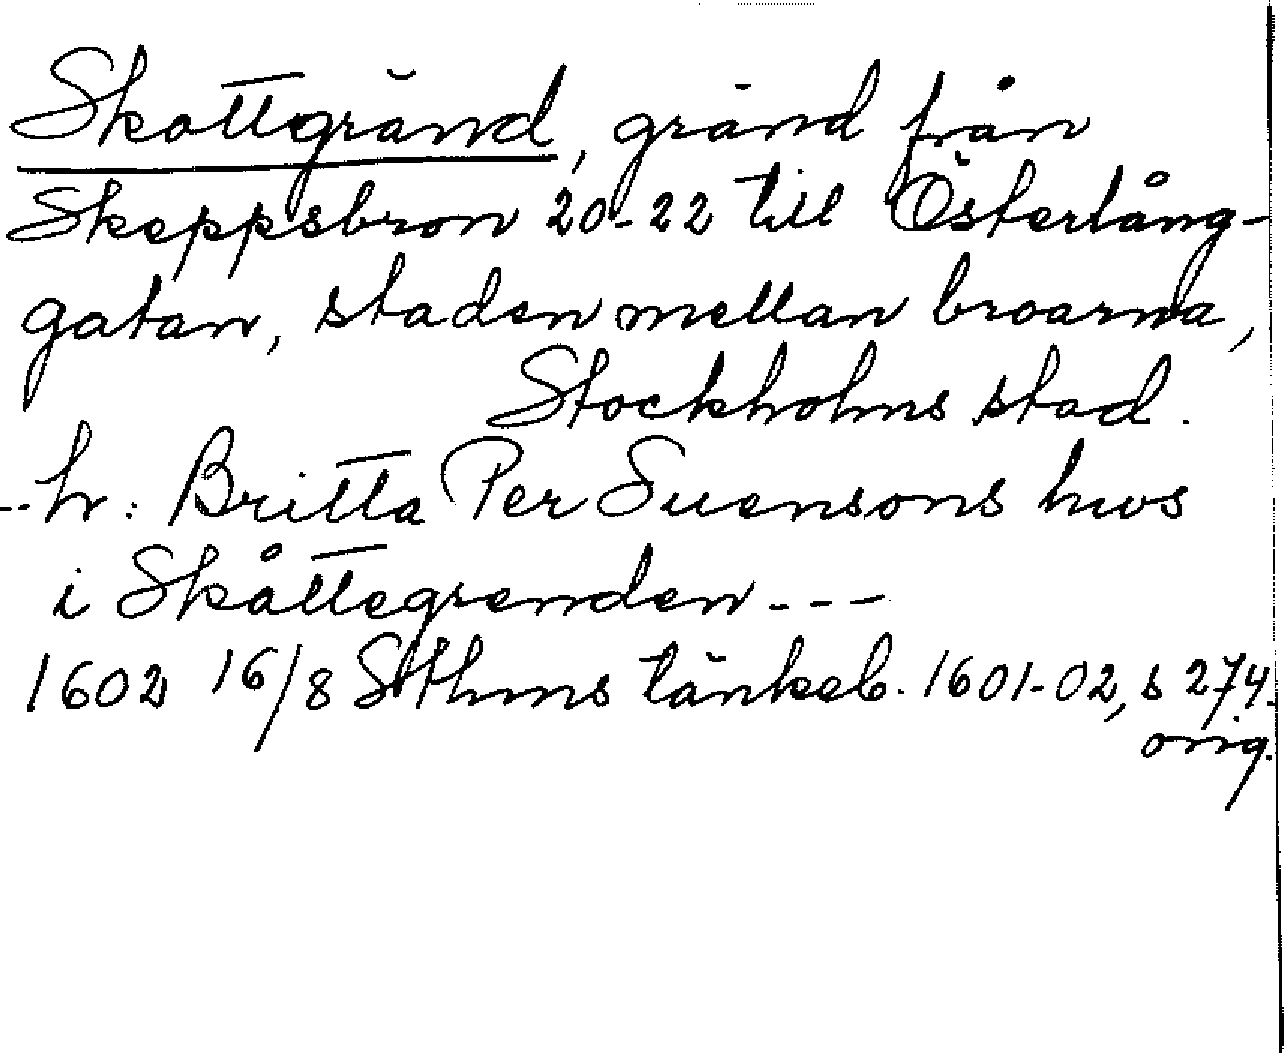 Skottgränd, gränd från
Skeppsbron 20-22 till Österlång-
gatan, staden mellan broarna,
Stockholms stad.
--hr: Britta Per Suensons hws
i Skåttegrenden---
1602 16/8 Sthms tänkeb. 1601-02, s 274.
orig.